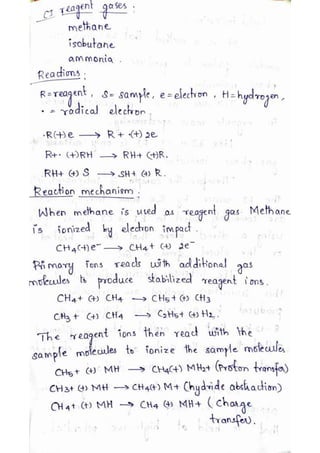 CI reagent gases :
methane
isobutane
ammonia .
Reactions :
R=reagent , S= sample, e = electron , H = hydrogen ,
• = radical electron .
·R(+)e ⟶ R + ·(+) 2e
R+· (+)RH ⟶ RH+ (+)R.
RH+ (+) S ⟶ SH+ (+) R .
Reaction mechanism :
When methane is used as reagent gas Methane
is ionized by electron impact .
CH4(+)e⁻ ⟶ CH4+ (+) 2e⁻
Primary ions reacts with additional gas
molecules to produce stabilized reagent ions .
CH4+ (+) CH4 ⟶ CH5+ (+) CH3
CH3+ (+) CH4 ⟶ C2H5+ (+) H2 .
The reagent ions then react with the
sample molecules to ionize the sample molecules
CH5+ (+) MH ⟶ CH4(+) MH2+ (Proton transfer)
CH3+ (+) MH ⟶ CH4(+) M+ (hydride abstraction)
CH4+ (+) MH ⟶ CH4 (+) MH+ ( Charge
transfer) .